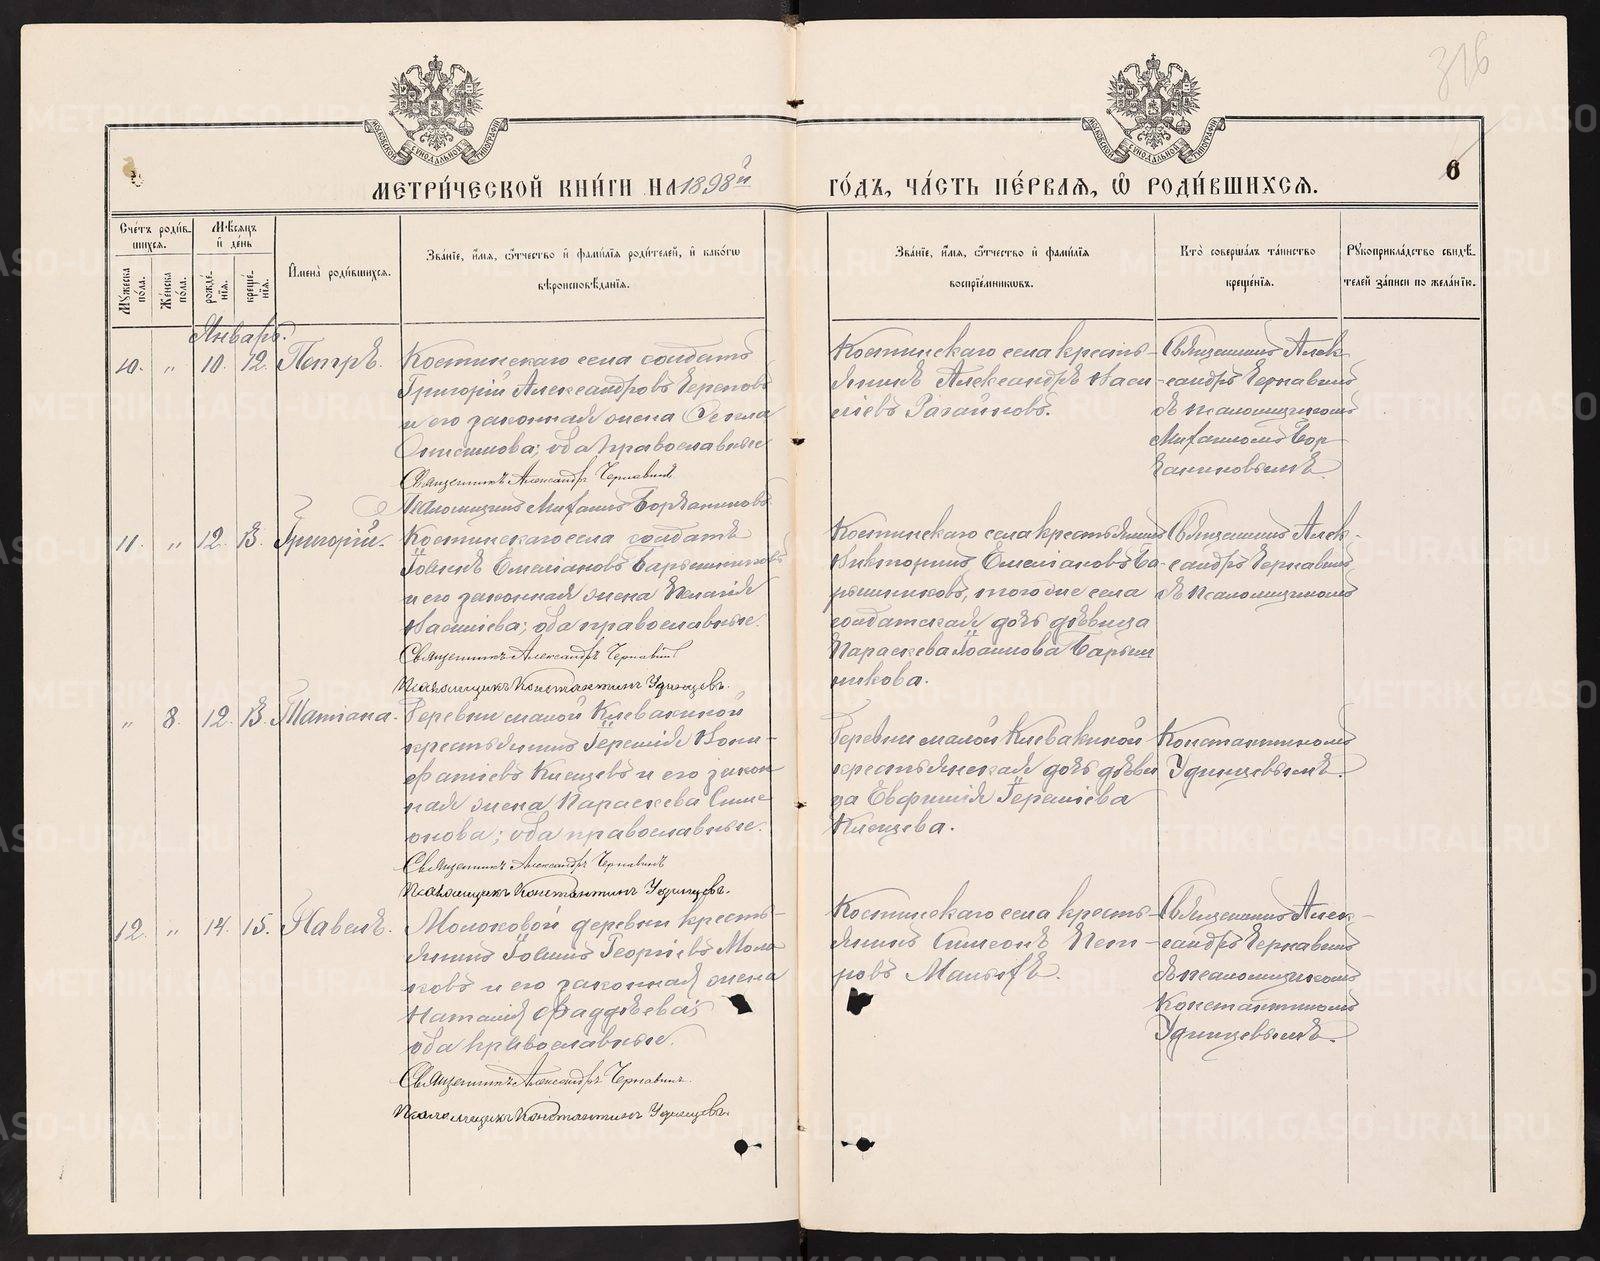 316
МОСКОВСКОЙ СѴНОДАЛЬНОЙ ТИПОГРАФІИ
МОСКОВСКОЙ СѴНОДАЛЬНОЙ ТИПОГРАФІИ
МЕТРИ́ЧЕСКОЙ КНИ́ГИ НА 1898й
ГО́ДЪ, ЧА́СТЬ ПЕ́РВАѦ, Ѡ҆ РОДИ́ВШИХСѦ.
6
Сче́тъ роди́в-
шихсѧ.
Мѣ́сѧцъ
и҆ де́нь
Му́жеска по́ла.
Же́нска по́ла.
рожде́-нїѧ.
креще́-нїѧ.
И҆мена̀ роди́вшихсѧ.
Зва́нїе, и҆́мѧ, ѻ҆́тчество и҆ фами́лїѧ роди́телей, и҆ како́гѡ
вѣроисповѣ́данїѧ.
Зва́нїе, и҆́мѧ, ѻ҆́тчество и҆ фами́лїѧ
воспрїе́мниковъ.
Кто̀ соверша́лъ та́инство
креще́нїѧ.
Рꙋкоприкла́дство свидѣ́-
телей за́писи по жела́нїю.
Январь.
10. " 10. 12. Петръ.
Костинскаго села солдатъ
Григорій Александровъ Череповъ
и его законная жена Ѳекла
Онисимова; оба православные
Священникъ Александръ Чернавинъ
Псаломщикъ Борчаниновъ
Костинскаго села кресть-
янинъ Александръ Васи-
ліевъ
Священникъ Алек-
сандръ Чернавинъ
съ псаломщикомъ
Бор-
чаниновымъ
11. " 12. 13. Григорій.
Костинскаго села солдатъ
Іоаннъ Емеліановъ Барышниковъ
и его законная жена Пелагія
Васильева; оба православные.
Священникъ Александръ Чернавинъ
Псаломщикъ Константинъ Удинцевъ.
Костинскаго села крестьянинъ
Викторинъ Емеліановъ Ба-
рышниковъ, того же села
солдатская дочь дѣвица
Параскева Іоаннова Барыш-
никова.
Священникъ Алек-
сандръ Чернавинъ
съ псаломщикомъ
" 8. 12. 13. Татіана.
Деревни малой Клевакиной
крестьянинъ Іеремія Вони-
фатіевъ Клещевъ и его закон-
ная жена Параскева Симе-
онова; оба православные.
Священникъ Александръ Чернавинъ
Псаломщикъ Константинъ Удинцевъ.
Деревни малой Клевакиной
крестьянская дочь дѣви-
ца Евфимія Іереміева
Клещева.
Константиномъ
Удинцевымъ.
12. " 14. 15. Павелъ.
Молоковой деревни кресть-
янинъ Іоаннъ Георгіевъ Моло-
ковъ и его законная жена
Наталія Фаддѣева;
оба православные.
Священникъ Александръ Чернавинъ.
Псаломщикъ Константинъ Удинцевъ.
Костинскаго села кресть-
янинъ Симеонъ Пет-
ровъ
Священникъ Алек-
сандръ Чернавинъ
съ псаломщикомъ
Константиномъ
Удинцевымъ.
METRIKI.GASO-URAL.RU